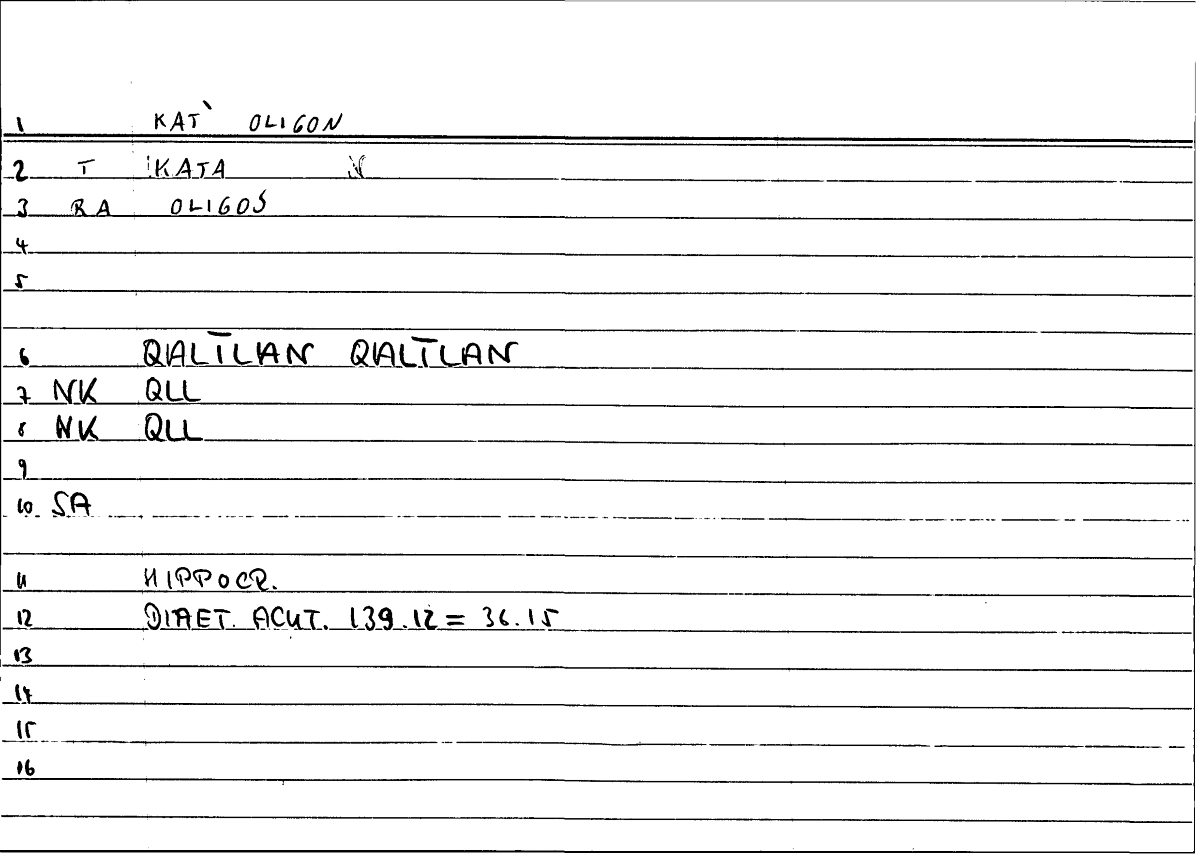 1 KAT` OLIGON
2 T KATA N
3 RA OLIGOS
4
5
6 QALĪLAN QALĪLAN
7 NK QLL
8 NK QLL
9
10 SA
11 HIPPOCR.
12 DIAET. ACUT. 139.12 = 36.15
13
14
15
16